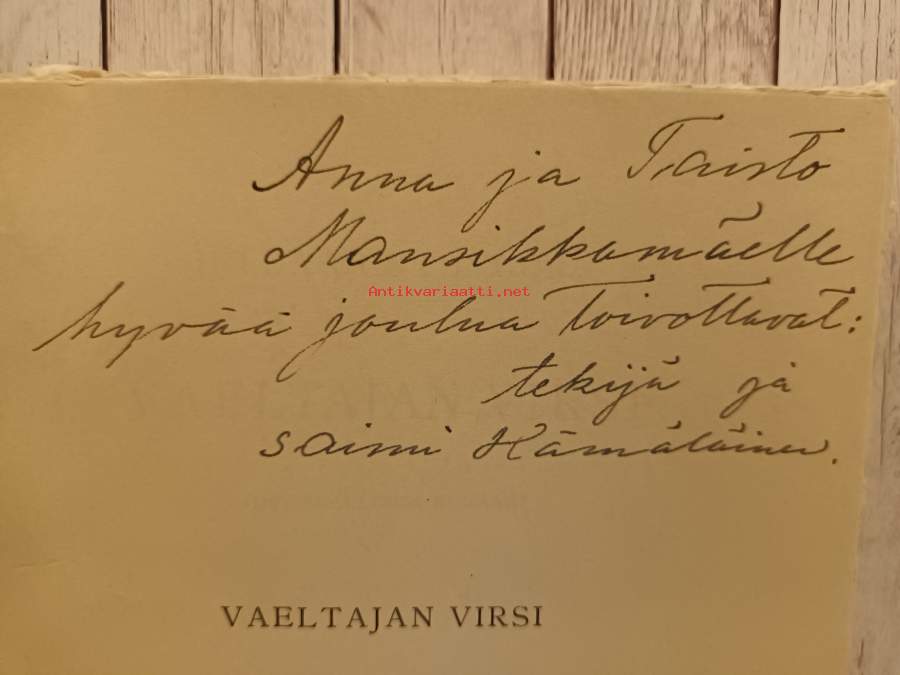 Anna ja Taisto
Mansikkamäelle
Antikvariaatti.net
hyvää joulua toivottavat:
tekijä ja
Saimi Hämäläinen.
VAELTAJAN VIRSI